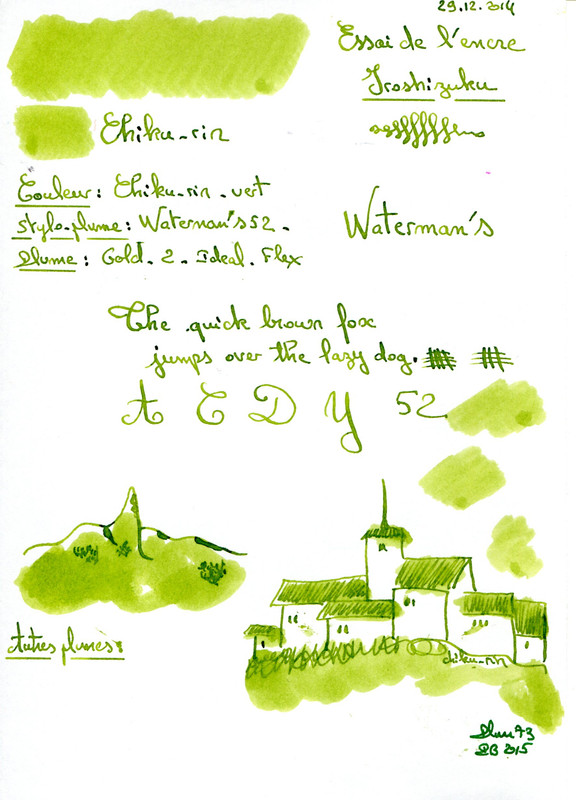 29.12.2014
Essai de l'encre
Iroshizuku
Chiku-rin
Couleur : Chiku-rin . vert
Stylo-plume : Waterman's 52 .
Plume : Gold . 2 . Ideal . Flex
Waterman's
The quick brown fox
jumps over the lazy dog.
A C D Y 52
Autres plumes :
chiku-rin
2015